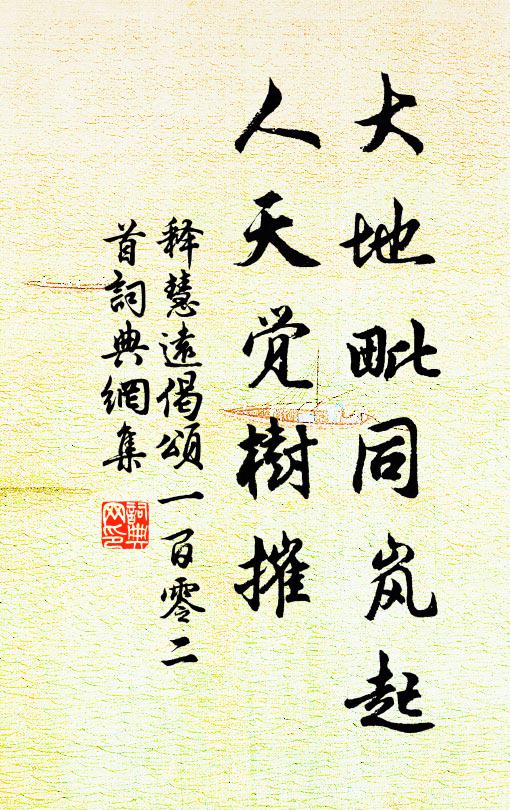 大地毗同岚起
人天觉樹摧
释慧遠偈頌一百零二
首詞典網集
詞典网印